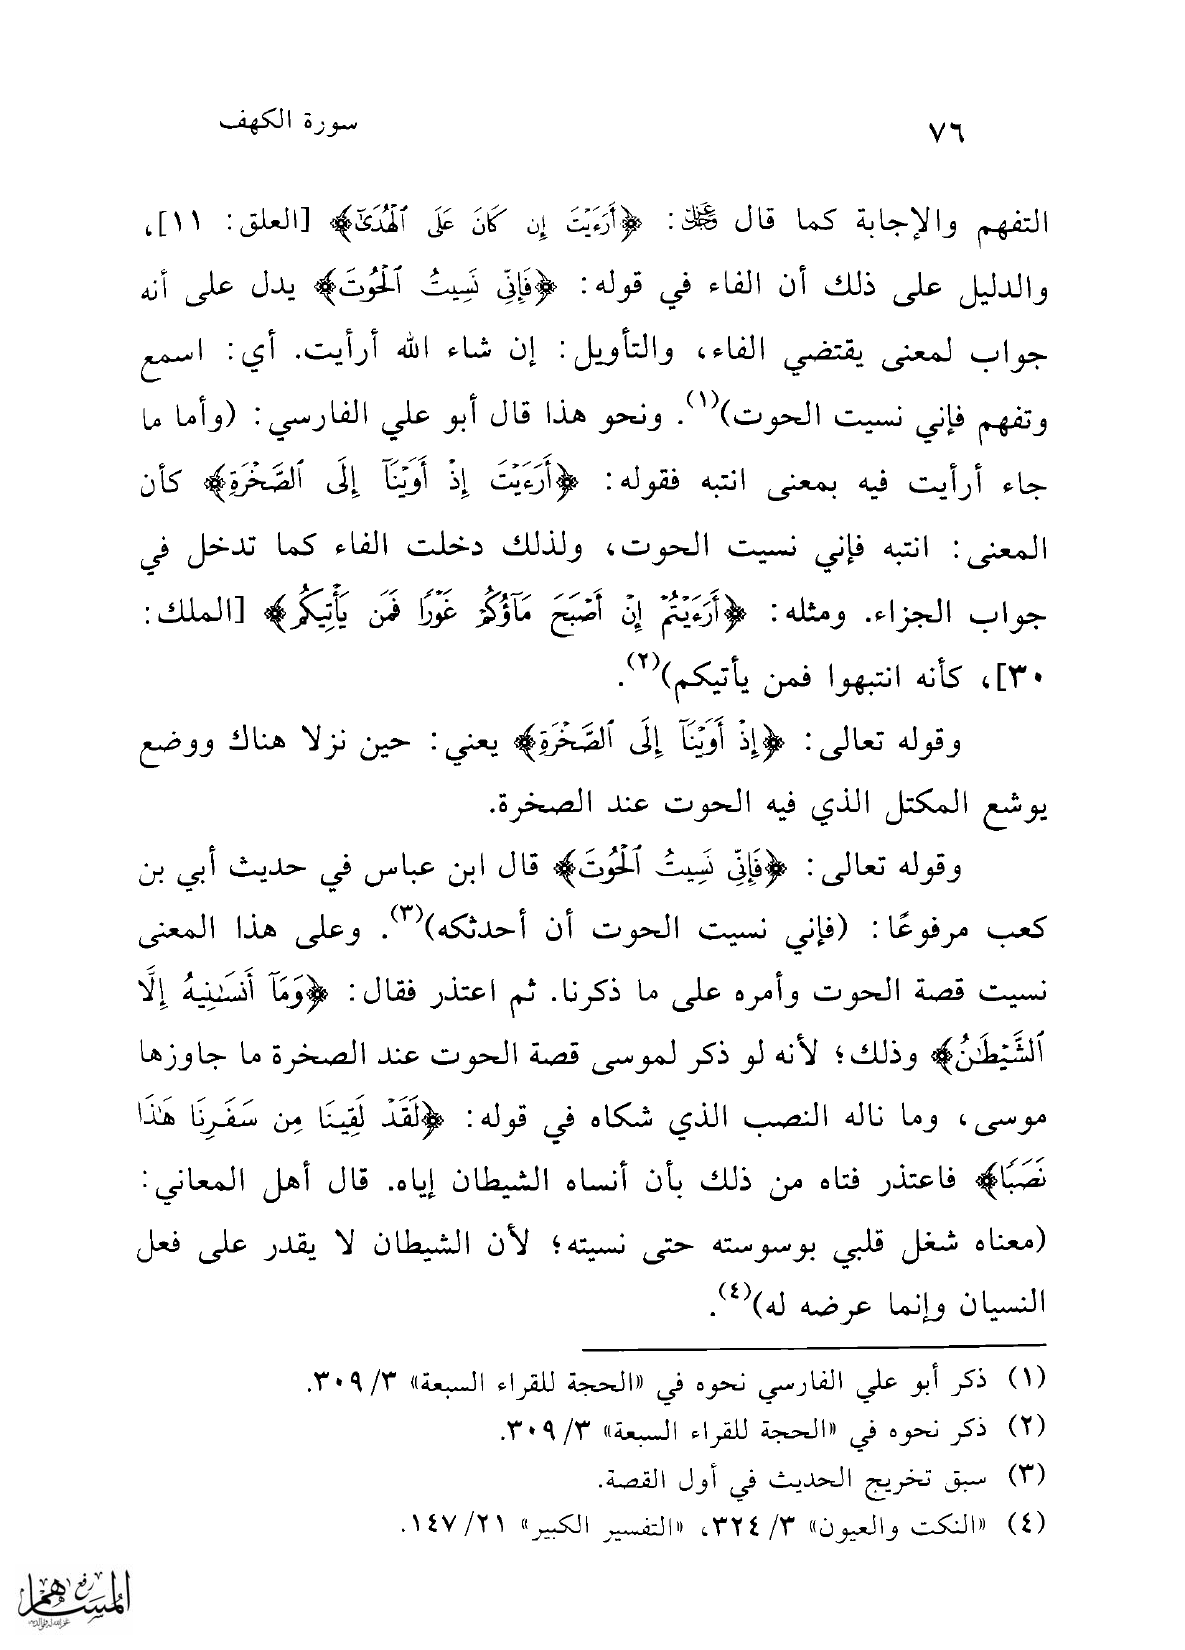 ٧٦ سورة الكهف
التفهم والإجابة كما قال ﷿: ﴿أَرَءَيْتَ إِن كَانَ عَلَى ٱلْهُدَىٰٓ﴾ [العلق: ١١]،
والدليل على ذلك أن الفاء في قوله: ﴿فَإِنِّى نَسِيتُ ٱلْحُوتَ﴾ يدل على أنه
جواب لمعنى يقتضي الفاء، والتأويل: إن شاء الله أرأيت. أي: اسمع
وتفهم فإني نسيت الحوت)(١). ونحو هذا قال أبو علي الفارسي: (وأما ما
جاء أرأيت فيه بمعنى انتبه فقوله: ﴿أَرَءَيْتَ إِذْ أَوَيْنَآ إِلَى ٱلصَّخْرَةِ﴾ كأن
المعنى: انتبه فإني نسيت الحوت، ولذلك دخلت الفاء كما تدخل في
جواب الجزاء. ومثله: ﴿أَرَءَيْتُمْ إِنْ أَصْبَحَ مَآؤُكُمْ غَوْرًا فَمَن يَأْتِيكُم﴾ [الملك:
٣٠]، كأنه انتبهوا فمن يأتيكم)(٢).
وقوله تعالى: ﴿إِذْ أَوَيْنَآ إِلَى ٱلصَّخْرَةِ﴾ يعني: حين نزلا هناك ووضع
يوشع المكتل الذي فيه الحوت عند الصخرة.
وقوله تعالى: ﴿فَإِنِّى نَسِيتُ ٱلْحُوتَ﴾ قال ابن عباس في حديث أبي بن
كعب مرفوعًا: (فإني نسيت الحوت أن أحدثكه)(٣). وعلى هذا المعنى
نسيت قصة الحوت وأمره على ما ذكرنا. ثم اعتذر فقال: ﴿وَمَآ أَنسَىٰنِيهُ إِلَّا
ٱلشَّيْطَٰنُ﴾ وذلك؛ لأنه لو ذكر لموسى قصة الحوت عند الصخرة ما جاوزها
موسى، وما ناله النصب الذي شكاه في قوله: ﴿لَقَدْ لَقِينَا مِن سَفَرِنَا هَٰذَا
نَصَبًا﴾ فاعتذر فتاه من ذلك بأن أنساه الشيطان إياه. قال أهل المعاني:
(معناه شغل قلبي بوسوسته حتى نسيته؛ لأن الشيطان لا يقدر على فعل
النسيان وإنما عرضه له)(٤).
(١) ذكر أبو علي الفارسي نحوه في «الحجة للقراء السبعة» ٣/ ٣٠٩.
(٢) ذكر نحوه في «الحجة للقراء السبعة» ٣/ ٣٠٩.
(٣) سبق تخريج الحديث في أول القصة.
(٤) «النكت والعيون» ٣/ ٣٢٤، «التفسير الكبير» ٢١/ ١٤٧.